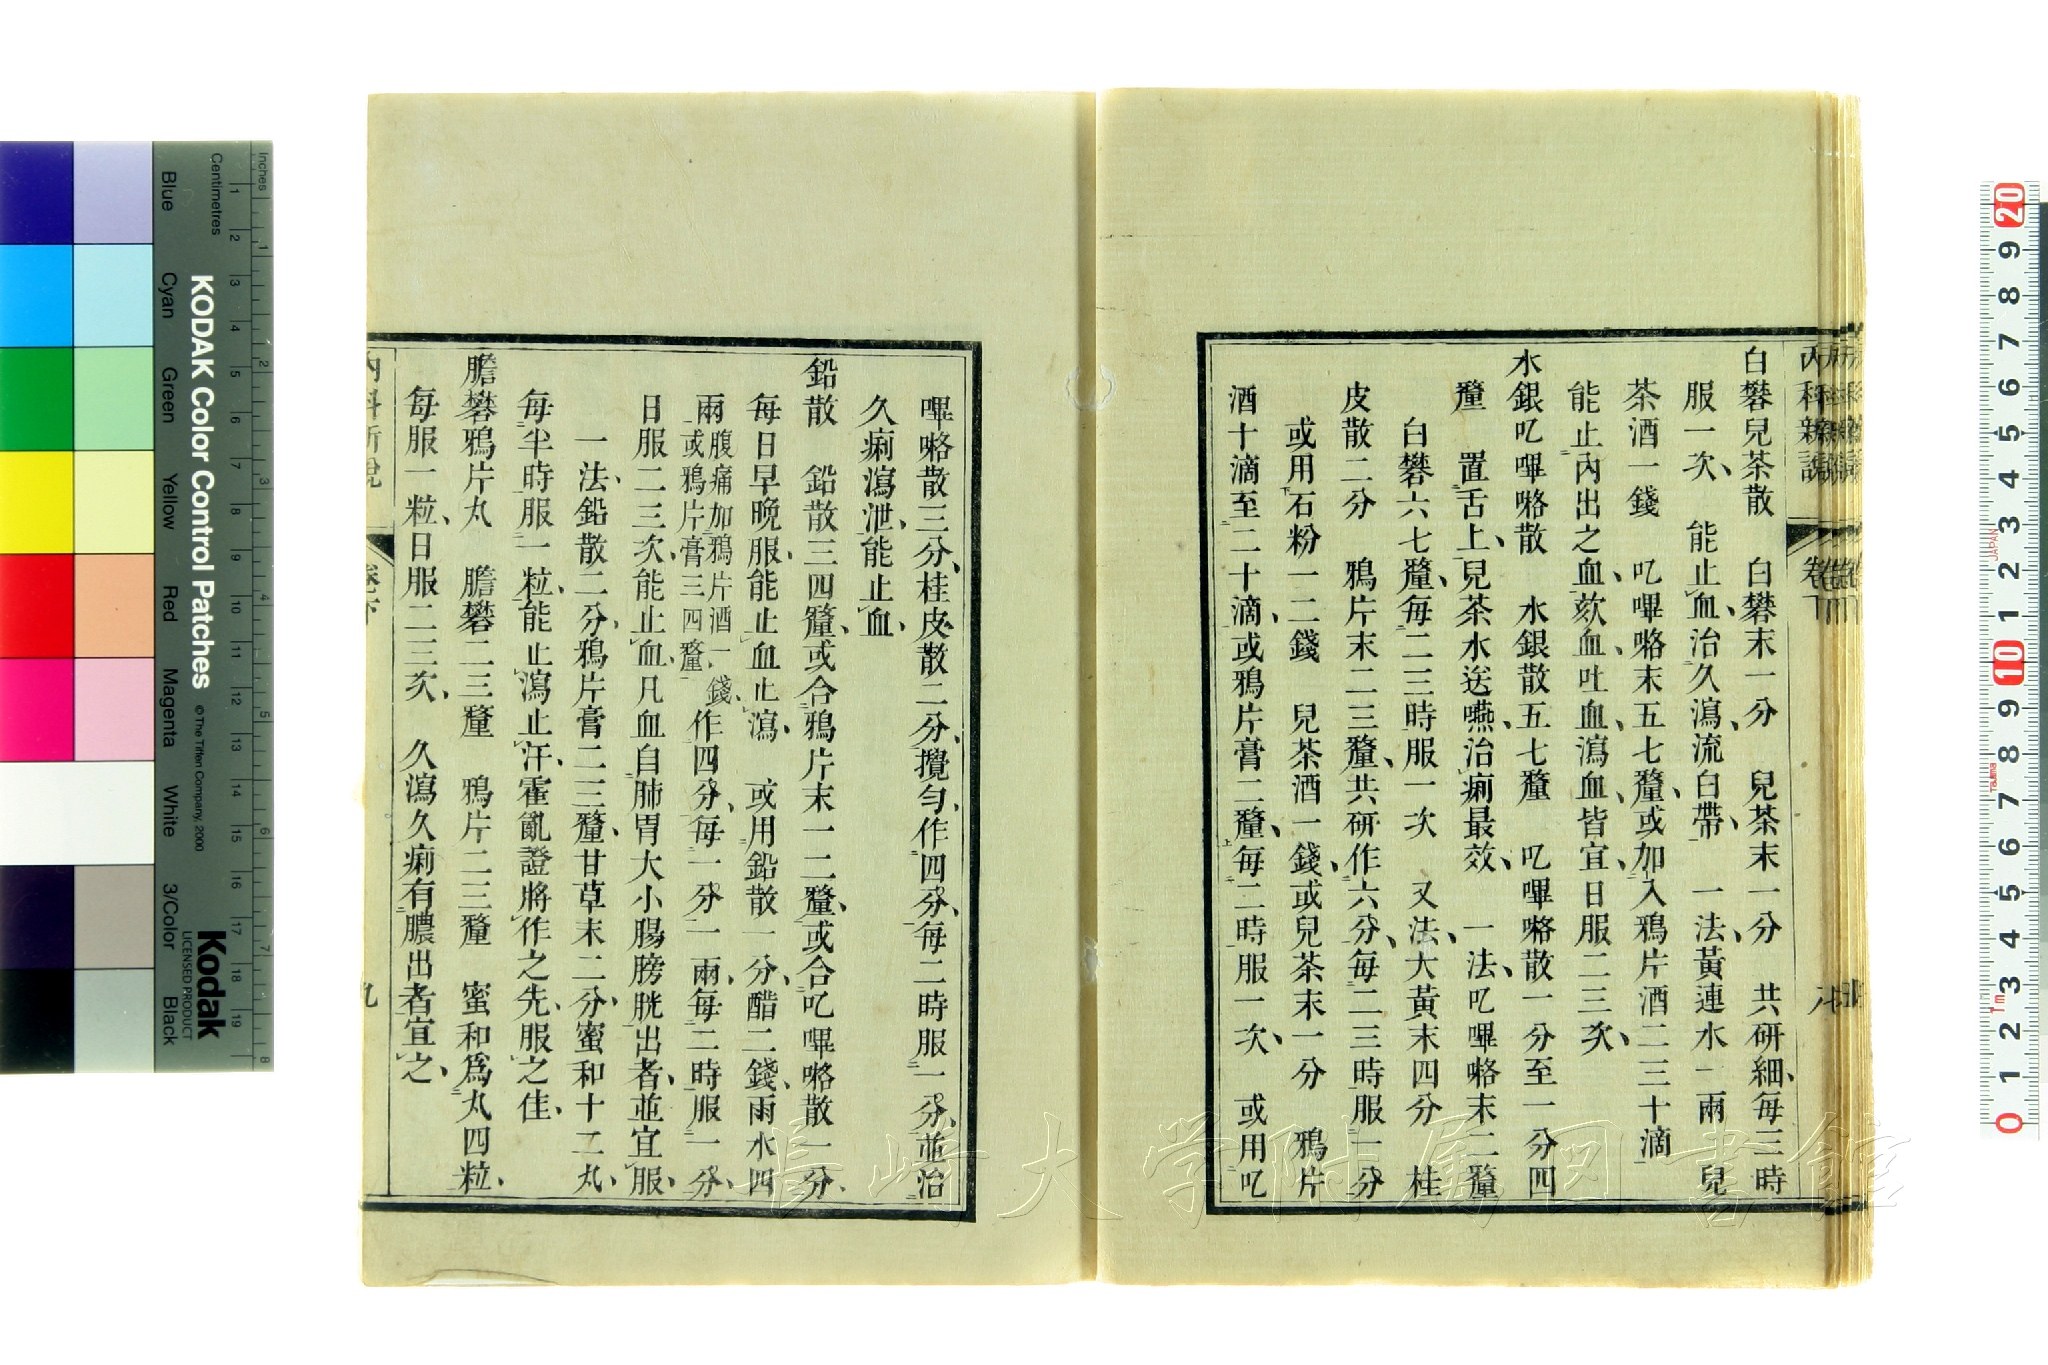 內科新說
卷下
白礬兒茶散　白礬末一分　兒茶末一分　共研細、每三時
服一次、　能止血、治久瀉、流白帶、　一法、黃連水一兩　兒
茶酒一錢　叱嗶咯末五七釐、或加入鴉片酒二三十滴
能止內出之血、欬血、吐血、瀉血、皆宜、日服二三次、
水銀叱嗶咯散　水銀散五七釐　叱嗶咯散一分至一分四
釐　置舌上、兒茶水送嚥、治痢最效、　一法、叱嗶咯末二釐
白礬六七釐、每二三時服一次　又法、大黃末四分　桂
皮散二分　鴉片末二三釐、共研作六分、每二三時服一分
或用石粉一二錢　兒茶酒一錢、或兒茶末一分　鴉片
酒十滴至二十滴、或鴉片膏二釐、每二時服一次、　或用叱
嗶咯散三分、桂皮散二分、攪勻、作四分、每二時服一分、並治
久痢瀉泄、能止血、
鉛散　鉛散三四釐、或合鴉片末一二釐、或合叱嗶咯散一分、
每日早晚服、能止血止瀉、　或用鉛散一分、醋二錢、雨水四
兩腹痛加鴉片酒一錢、或鴉片膏三四釐作四分、每一分一兩、每二時服一分、
日服二三次、能止血、凡血自肺胃大小腸膀胱出者、並宜服、
一法、鉛散二分、鴉片膏二三釐、甘草末二分、蜜和十二丸、
每半時服一粒、能止瀉止汗、霍亂證將作之先、服之佳、
膽礬鴉片丸　膽礬二三釐　鴉片二三釐　蜜和爲丸四粒、
每服一粒、日服二三次、　久瀉久痢有膿出者宜之、
內科新說
卷下
九
長崎大学附属図書館
KODAK Color Control Patches
© The Tiffen Company, 2000
Kodak
LICENSED PRODUCT
Inches
Centimetres
Blue
Cyan
Green
Yellow
Red
Magenta
White
3/Color
Black